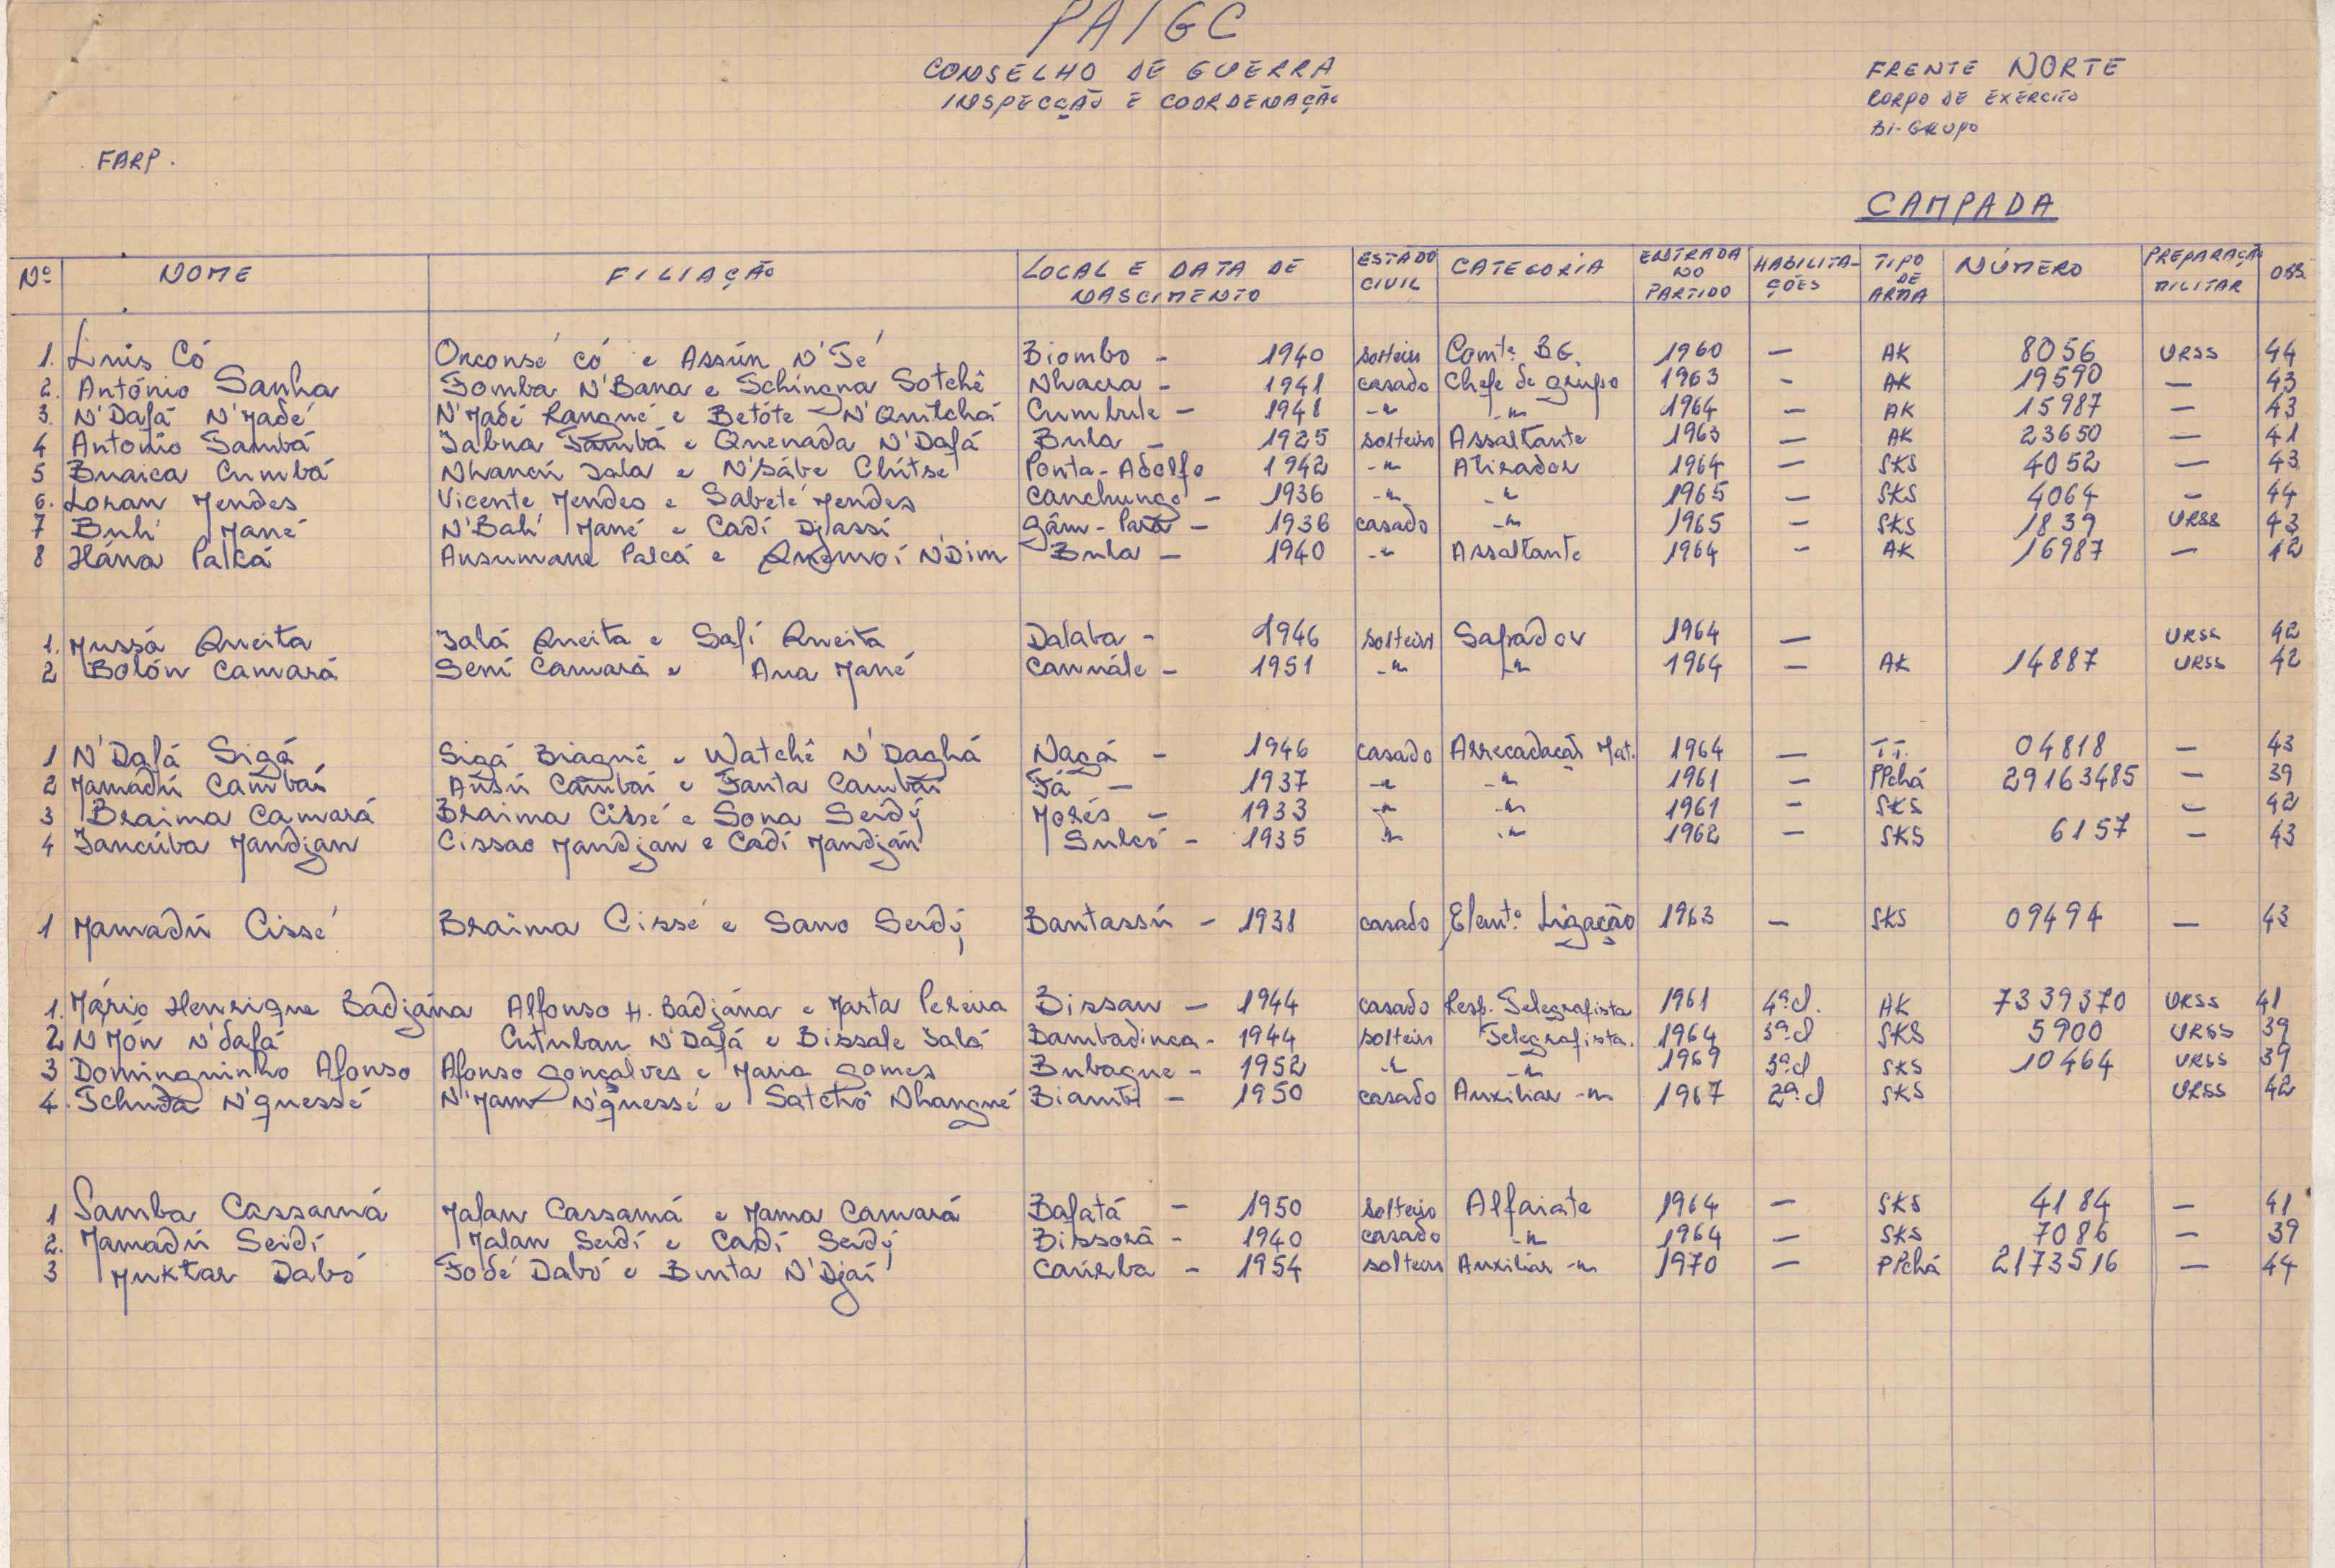 PAIGC
CONSELHO DE GUERRA
INSPECÇÃO E COORDENAÇÃO
FRENTE NORTE
CORPO DE EXÉRCITO
BI-GRUPO
FARP.
CAMPADA
Nº NOME FILIAÇÃO LOCAL E DATA DE NASCIMENTO ESTADO CIVIL CATEGORIA ENTRADA NO PARTIDO HABILITAÇÕES TIPO DE ARMA NÚMERO PREPARAÇÃO MILITAR OBS.
1. Luis Có Onconsé có e Assún N'Té Biombo - 1940 solteiro Comte. BG. 1960 — AK 8056 URSS 44
2. António Sanha Tomba N'Bana e Tchingna Sotchê Nhacra - 1941 casado Chefe de grupo 1963 - AK 19590 — 43
3. N'Dafá N'Madé N'Madé Rangné e Betóte N'Quitchá Cumbule - 1941 -"- -"- 1964 — AK 15987 — 43
4 António Tambá Jabna Tambá e Quenada N'Dafá Bula - 1925 solteiro Assaltante 1963 — AK 23650 — 41
5 Buaica Cumbá Nhancú Iala e N'Sábe Chitse Ponta-Adolfo 1942 -"- Atirador 1964 — SKS 4052 — 43
6. Loran Mendes Vicente Mendes e Sabeté Mendes Canchungo - 1936 -"- -"- 1965 — SKS 4064 - 44
7 Buli Mané N'Bali Mané e Cadi Djassi Gâm-Pará - 1936 casado -"- 1965 — SKS 1839 URSS 43
8 Hána Palcá Ansumane Palcá e N'Dim Bula - 1940 -"- Assaltante 1964 - AK 16987 — 42
1. Mussá Queita Jalá Queita e Safi Queita Dalaba - 1946 solteiro Sapador 1964 — URSS 42
2 Bolón Camará Seni Camará e Ana Mané Cannále - 1951 -"- -"- 1964 — AK 14887 URSS 42
1 N'Dafá Sigá Sigá Biagné e Watchê N'Daghá Nagá - 1946 casado Arrecadação Mat. 1964 — T.T. 04818 - 43
2 Mamadú Cambai Ansú Cambai e Fanta Cambai Fá — 1937 -"- -"- 1961 — PPchá 29163485 — 39
3 Braima Camará Braima Cissé e Sona Seidy Morés - 1933 -"- -"- 1961 - SKS - 42
4 Jancúba Mandjan Cissao Mandjan e Cadi Mandján Sulcó - 1935 -"- -"- 1962 — SKS 6157 — 43
1 Mamadú Cissé Braima Cissé e Sano Seidy Bantassú - 1938 casado Elemtº Ligação 1963 - SKS 09494 — 43
1. Mário Henrique Badjána Alfonso H. Badjána e Marta Pereira Bissau - 1944 casado Resp. Telegrafista 1961 4ª cl. AK 7339370 URSS 41
2 N'Món N'dafá Cutuban N'Dafá e Bissale Ialá Bambadinca - 1944 solteiro Telegrafista. 1964 3ª cl SKS 5900 URSS 39
3 Dominguinho Afonso Afonso Gonçalves e Maria Gomes Bubaque - 1952 -"- -"- 1969 3ª cl SKS 10464 URSS 39
4. Tchuda N'quessé N'Jam N'quessé e Satchô Nhangné Biambi - 1950 casado Auxiliar -"- 1967 2ª cl SKS URSS 42
1 Samba Cassamá Malan Cassamá e Mama Camará Bafatá - 1950 solteiro Alfaiate 1964 — SKS 4184 — 41
2. Mamadú Seidi Malan Seidi e Cadi Seidy Bissorã - 1940 casado -"- 1964 - SKS 7086 - 39
3 Muktar Dabó Fodé Dabó e Binta N'Djai Caúrba - 1954 solteiro Auxiliar -"- 1970 — PPchá 2173516 — 44